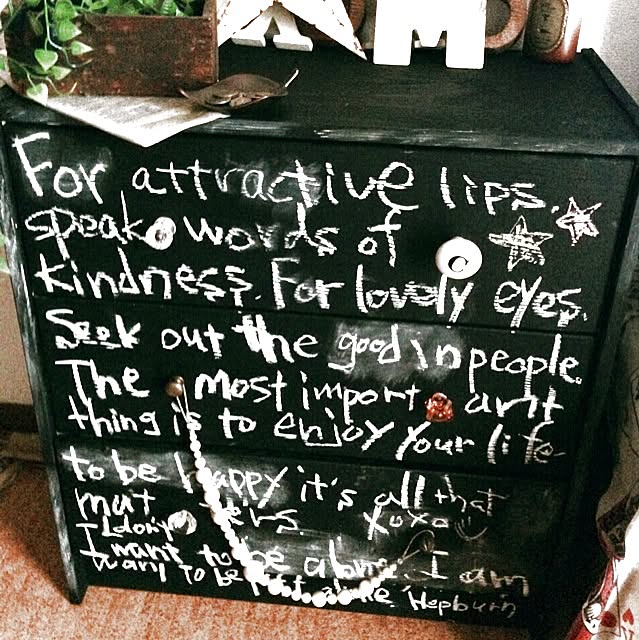 AM
For attractive lips.
speak words of
C
kindness. For lovely eyes.
Seek out the good in people.
The most import ant
thing is to enjoy your life
to be happy it's all that
mat ters. xoxo
I don't
I want to be alone. I am
to be Hepburn